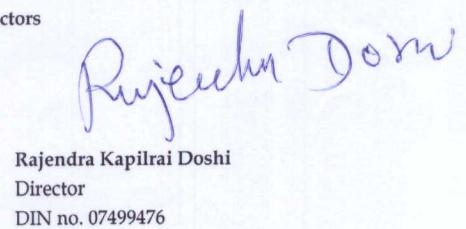 ctors
Rajendra Doshi
Rajendra Kapilrai Doshi
Director
DIN no. 07499476